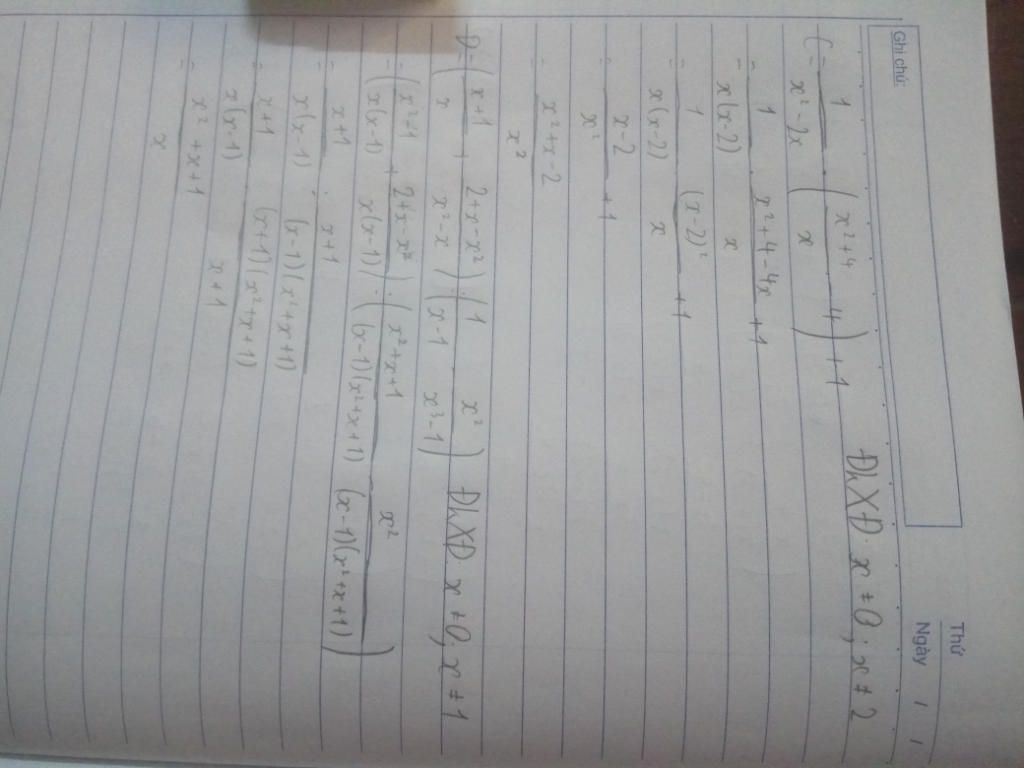 Ghi chú:
Thứ
Ngày / /
C = 1/(x² - 2x) . ((x² + 4)/x - 4) + 1 ĐkXĐ: x ≠ 0; x ≠ 2
= 1/(x(x-2)) . (x² + 4 - 4x)/x + 1
= 1/(x(x-2)) (x-2)²/x + 1
= (x-2)/x² + 1
= (x² + x - 2)/x²
D = ((x+1)/x + (2+x-x²)/(x²-x)) : (1/(x-1) - x²/(x³-1)) ĐkXĐ: x ≠ 0; x ≠ 1
= ((x²+1)/(x(x-1)) + (2+x-x²)/(x(x-1))) : ((x²+x+1)/((x-1)(x²+x+1)) - x²/((x-1)(x²+x+1)))
= (x+1)/(x(x-1)) : (x+1)/((x-1)(x²+x+1))
= (x+1)/(x(x-1)) . ((x-1)(x²+x+1))/(x+1)
= (x²+x+1)/x